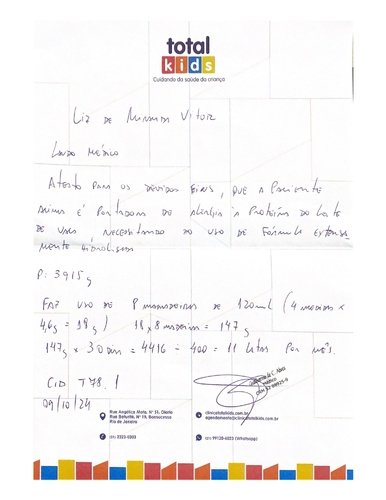 total
kids
Cuidando da saúde da criança
Liz de Miranda Vitor
Laudo Médico
Atesto para os devidos fins, que a paciente
acima é portadora de alergia à proteína do leite
de vaca, necessitando do uso de fórmula extensa
mente hidrolisada
P: 3915g
Faz uso de 8 mamadeiras de 120ml (4 medidas x
4,6g = 18g) 18 x 8 mamadeiras = 147g
147g x 30 dias = 4416 ÷ 400 = 11 latas por mês.
CID T78.1
09/10/24
Rua Angélica Mota, Nº 51, Olaria
Rio de Janeiro
clinicatotalkids.com.br
(21) 2323-0303
(21) 99130-6023 (Whatsapp)